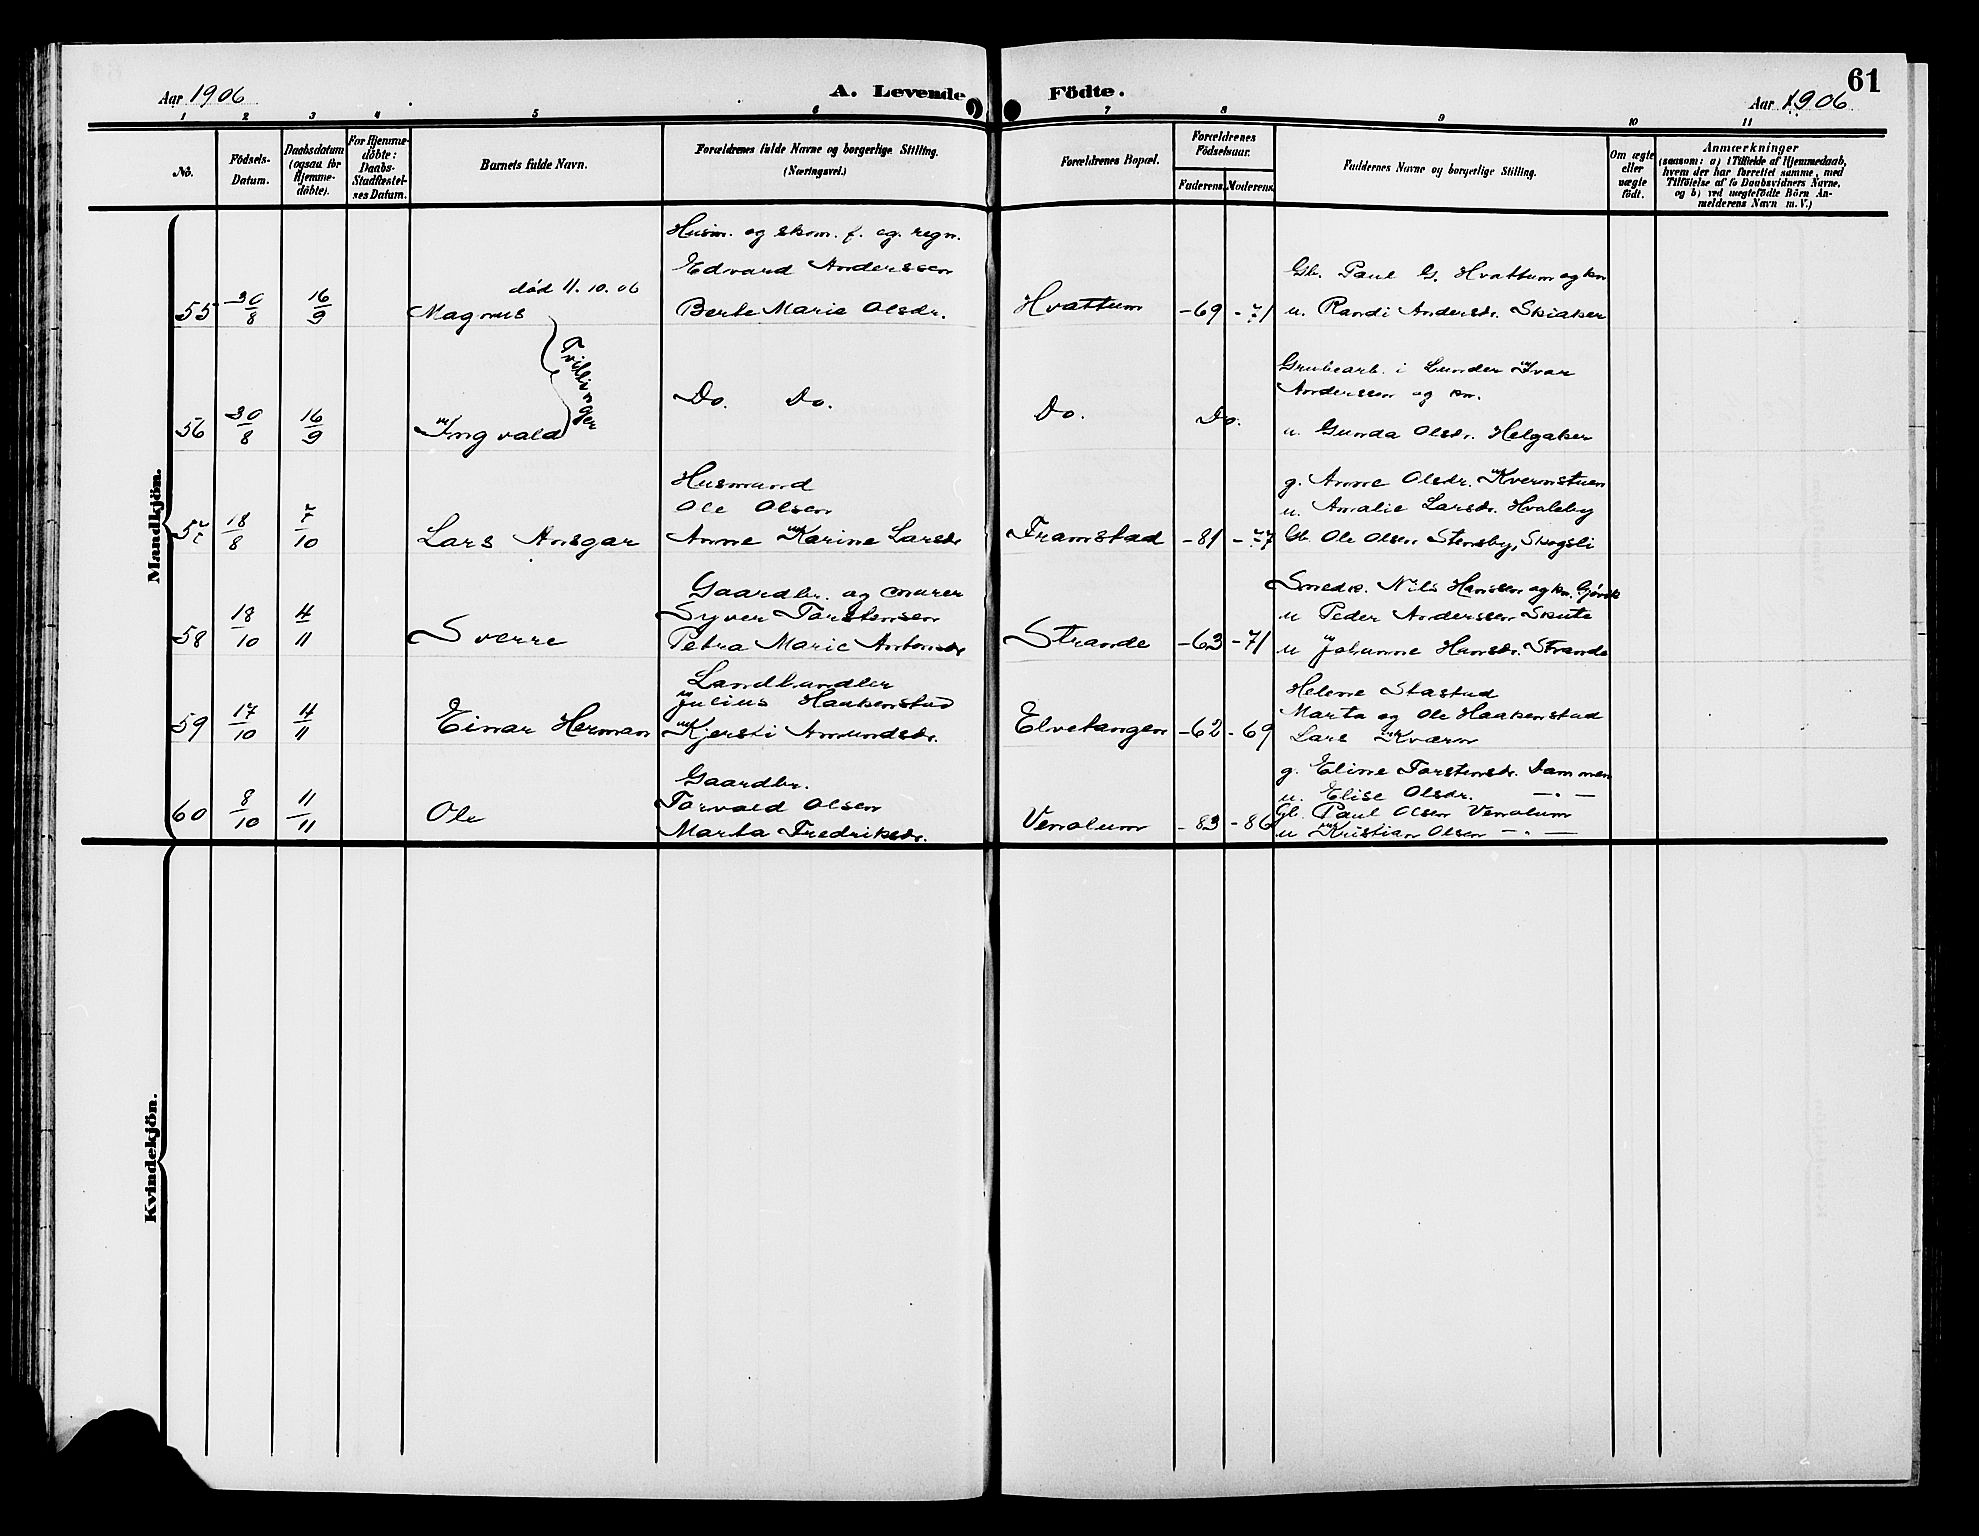 61
Aar 1906
A. Levende Födte.
Aar 1906
1 2 3 4 5 6 7 8 9 10 11
No.
Födsels-
Datum.
Daabsdatum
(ogsaa for
Hjemme-
döbte).
For Hjemme-
döbte:
Daabs-
Stadfæstel-
ses Datum.
Barnets fulde Navn.
Forældrenes fulde Navne og borgerlige Stilling.
(Næringsvei.)
Forældrenes Bopæl.
Forældrenes
Födselsaar.
Faderens. Moderens.
Faddernes Navne og borgerlige Stilling.
Om ægte
eller
uægte
födt.
Anmærkninger
(saasom: a) i Tilfælde af Hjemmedaab,
hvem der har forrettet samme, med
Tilföielse af to Daabsvidners Navne,
og b) ved uægtefödte Börn An-
melderens Navn m. V.)
Mandkjön.
Husm. og skom. f. og regn.
Edvard Anderssen
død 11.10.06
Gb. Paul G. Hvattum og kn
55 30/8 16/9 Magnus Berte Marie Olsdr. Hvattum -69 -71 u. Randi Andersdr. Skiaker
Tvillinger
Grubearb. i Lunder Ivar
Andersen og kn.
56 30/8 16/9 Ingvald Do. Do. Do. Do. u. Gunda Olsdr. Helgaker
Husmand g. Anne Olsdr. Kvernstuen
Ole Olsen u. Amalie Larsdr. Hvaleby
57 18/8 7/10 Lars Ansgar Anne Karine Larsdr Framstad -81 -77 Gb. Ole Olsen Stensby, Skogsli
Gaardbr. og murer Smedk. Nils Hanssen og kn. Gjøvik
Syver Torstensen u Peder Anderssen Skute
58 18/10 4/11 Sverre Petra Marie Antonsdr Strande -63 -71 u Johanne Hansdr. Strande
Landhandler Helene Stastad
Julius Haakenstad Marta og Ole Haakenstad
59 17/10 4/11 Einar Herman Kjersti Amundsdr. Elvetangen -62 -69 Lars Kværn
Gaardbr. g. Eline Torstensdr. Dammen
Torvald Olsen u. Elise Olsdr. — " —
60 8/10 11/11 Ole Marta Fredriksdr. Venolum -83 -86 Gb. Paul Olsen Venolum
u Kristian Olsen — " —
Kvindekjön.